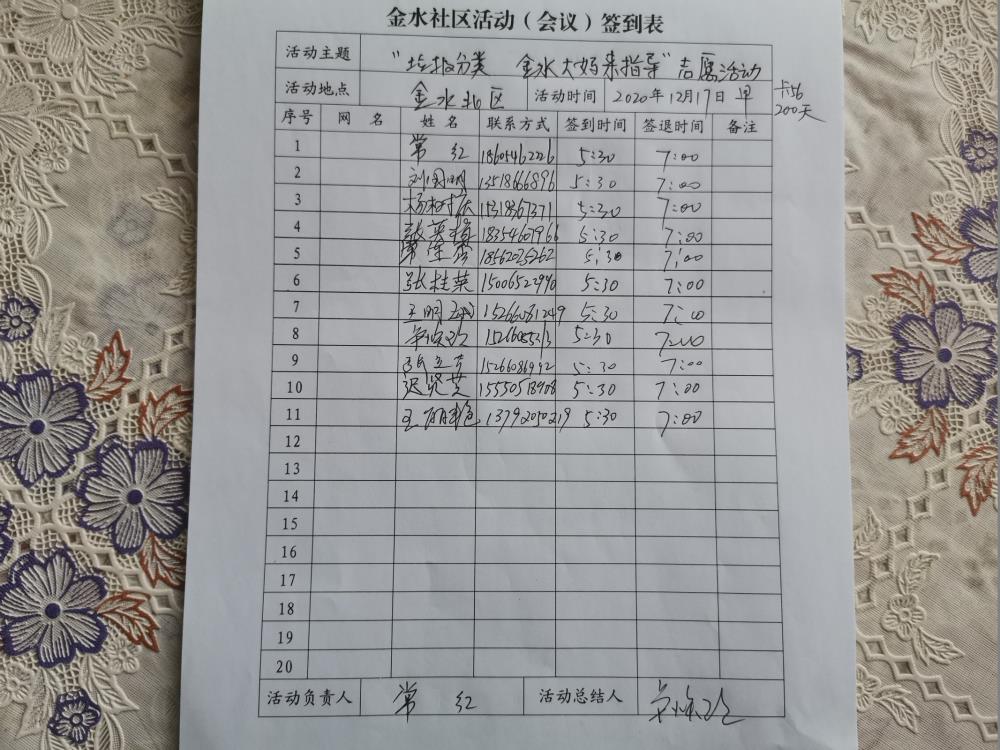 金水社区活动（会议）签到表
活动主题 “垃圾分类 金水大妈来指导”志愿活动
活动地点 金水社区 活动时间 2020年12月17日 早
200天
序号 网名 姓名 联系方式 签到时间 签退时间 备注
1 常红 18605462226 5:30 7:00
2 刘国明 13518666896 5:30 7:00
3 5:30 7:00
4 18354607966 5:30 7:00
5 18662025262 5:30 7:00
6 张桂菜 15006522970 5:30 7:00
7 15266081249 5:30 7:00
8 5:30 7:00
9 15266086992 5:30 7:00
10 15550518908 5:30 7:00
11 13792050219 5:30 7:00
12
13
14
15
16
17
18
19
20
活动负责人 常红 活动总结人